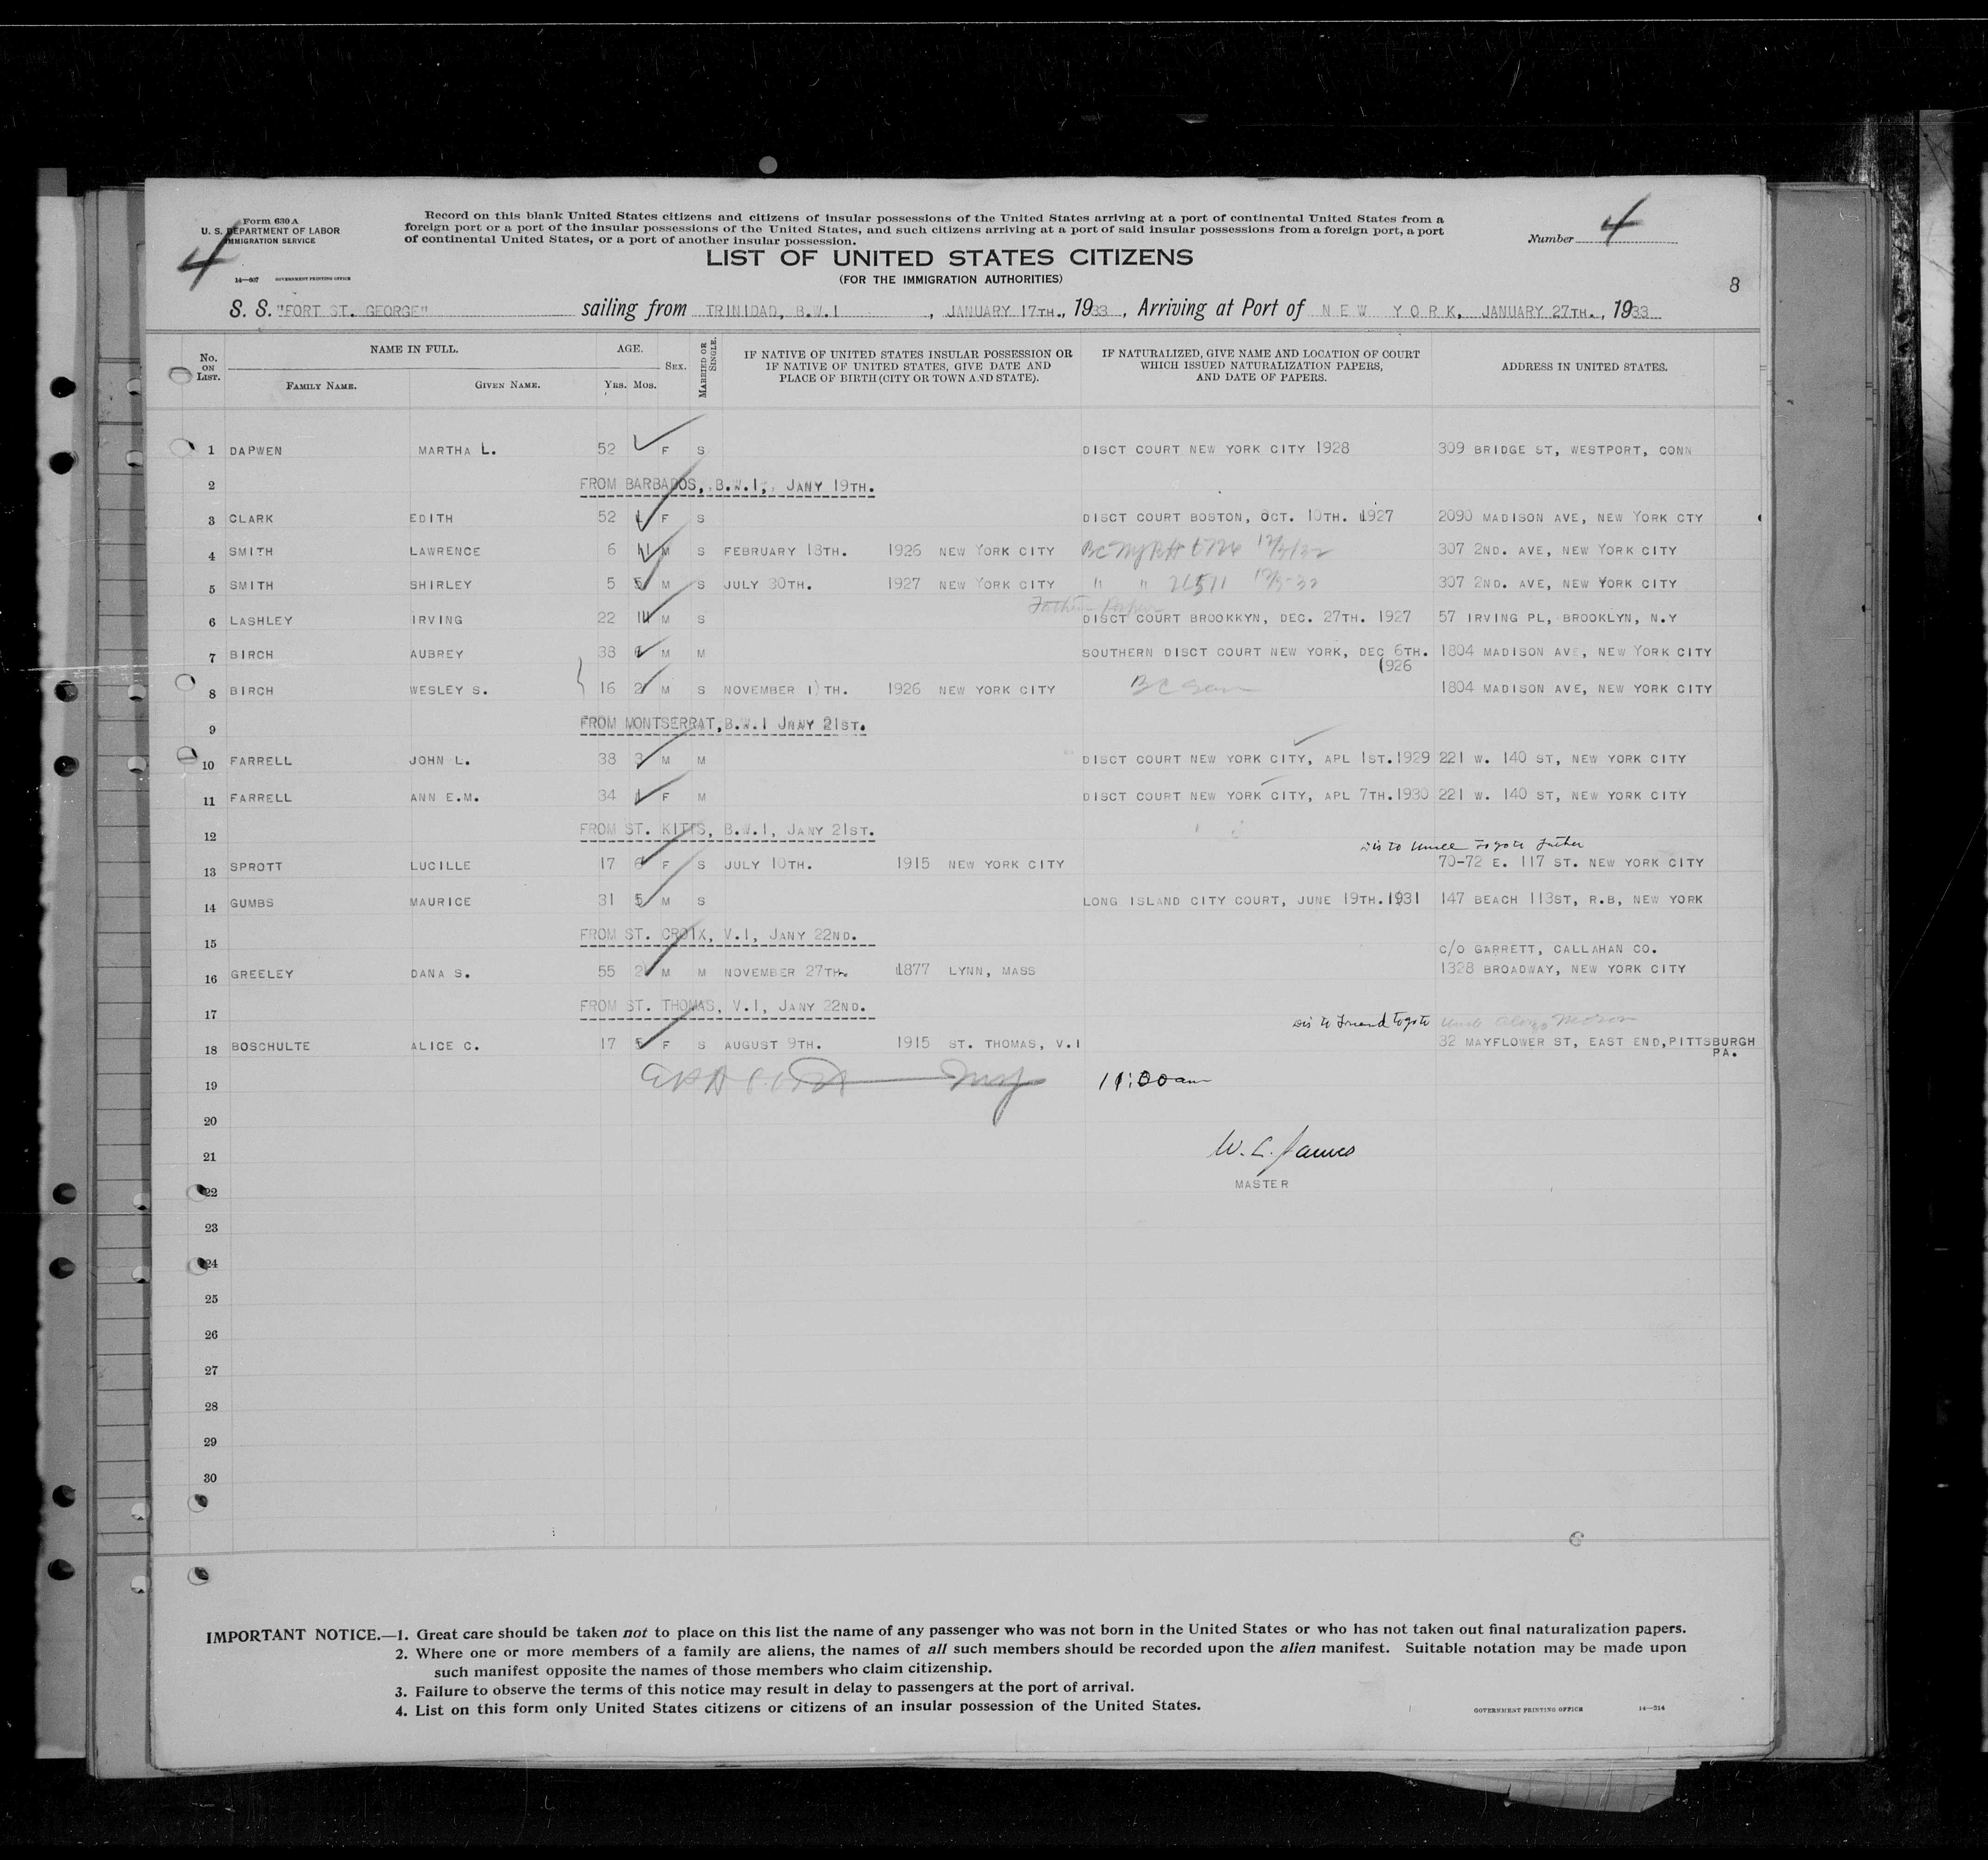 Form 630 A
U. S. DEPARTMENT OF LABOR
IMMIGRATION SERVICE
14—607 GOVERNMENT PRINTING OFFICE
4
Record on this blank United States citizens and citizens of insular possessions of the United States arriving at a port of continental United States from a
foreign port or a port of the insular possessions of the United States, and such citizens arriving at a port of said insular possessions from a foreign port, a port
of continental United States, or a port of another insular possession.
Number 4
LIST OF UNITED STATES CITIZENS
(FOR THE IMMIGRATION AUTHORITIES)
8
S. S. "FORT ST. GEORGE" sailing from TRINIDAD, B.W.I , JANUARY 17TH., 1933 , Arriving at Port of NEW YORK, JANUARY 27TH. , 1933
No. ON LIST. NAME IN FULL. FAMILY NAME. GIVEN NAME. AGE. YRS. MOS. SEX. MARRIED OR SINGLE. IF NATIVE OF UNITED STATES INSULAR POSSESSION OR IF NATIVE OF UNITED STATES, GIVE DATE AND PLACE OF BIRTH (CITY OR TOWN AND STATE). IF NATURALIZED, GIVE NAME AND LOCATION OF COURT WHICH ISSUED NATURALIZATION PAPERS, AND DATE OF PAPERS. ADDRESS IN UNITED STATES.
1 DAPWEN MARTHA L. 52 F S DISCT COURT NEW YORK CITY 1928 309 BRIDGE ST, WESTPORT, CONN
2 FROM BARBADOS, B.W.I, JANY 19TH.
3 CLARK EDITH 52 F S DISCT COURT BOSTON, OCT. 10TH. 1927 2090 MADISON AVE, NEW YORK CTY
4 SMITH LAWRENCE 6 11 M S FEBRUARY 18TH. 1926 NEW YORK CITY 307 2ND. AVE, NEW YORK CITY
5 SMITH SHIRLEY 5 5 M S JULY 30TH. 1927 NEW YORK CITY " " 26511 307 2ND. AVE, NEW YORK CITY
Father
6 LASHLEY IRVING 22 M S DISCT COURT BROOKKYN, DEC. 27TH. 1927 57 IRVING PL, BROOKLYN, N.Y
7 BIRCH AUBREY 38 M M SOUTHERN DISCT COURT NEW YORK, DEC 6TH. 1926 1804 MADISON AVE, NEW YORK CITY
8 BIRCH WESLEY S. 16 2 M S NOVEMBER 1)TH. 1926 NEW YORK CITY BC 1804 MADISON AVE, NEW YORK CITY
9 FROM MONTSERRAT, B.W.I JNAY 21ST.
10 FARRELL JOHN L. 38 3 M M DISCT COURT NEW YORK CITY, APL 1ST.1929 221 W. 140 ST, NEW YORK CITY
11 FARRELL ANN E.M. 34 F M DISCT COURT NEW YORK CITY, APL 7TH.1930 221 W. 140 ST, NEW YORK CITY
12 FROM ST. KITTS, B.W.I, JANY 21ST.
Dis to Uncle to go to Father
13 SPROTT LUCILLE 17 6 F S JULY 10TH. 1915 NEW YORK CITY 70-72 E. 117 ST. NEW YORK CITY
14 GUMBS MAURICE 31 5 M S LONG ISLAND CITY COURT, JUNE 19TH.1931 147 BEACH 113ST, R.B, NEW YORK
15 FROM ST. CROIX, V.I, JANY 22ND.
C/O GARRETT, CALLAHAN CO.
16 GREELEY DANA S. 55 2 M M NOVEMBER 27TH. 1877 LYNN, MASS 1328 BROADWAY, NEW YORK CITY
17 FROM ST. THOMAS, V.I, JANY 22ND.
Dis to Friend to go to Uncle
18 BOSCHULTE ALICE C. 17 5 F S AUGUST 9TH. 1915 ST. THOMAS, V.I 32 MAYFLOWER ST, EAST END, PITTSBURGH PA.
19 11:00 am
20
21 W. L. James
22 MASTER
23
24
25
26
27
28
29
30
IMPORTANT NOTICE.—1. Great care should be taken not to place on this list the name of any passenger who was not born in the United States or who has not taken out final naturalization papers.
2. Where one or more members of a family are aliens, the names of all such members should be recorded upon the alien manifest. Suitable notation may be made upon
such manifest opposite the names of those members who claim citizenship.
3. Failure to observe the terms of this notice may result in delay to passengers at the port of arrival.
4. List on this form only United States citizens or citizens of an insular possession of the United States.
GOVERNMENT PRINTING OFFICE 14—314